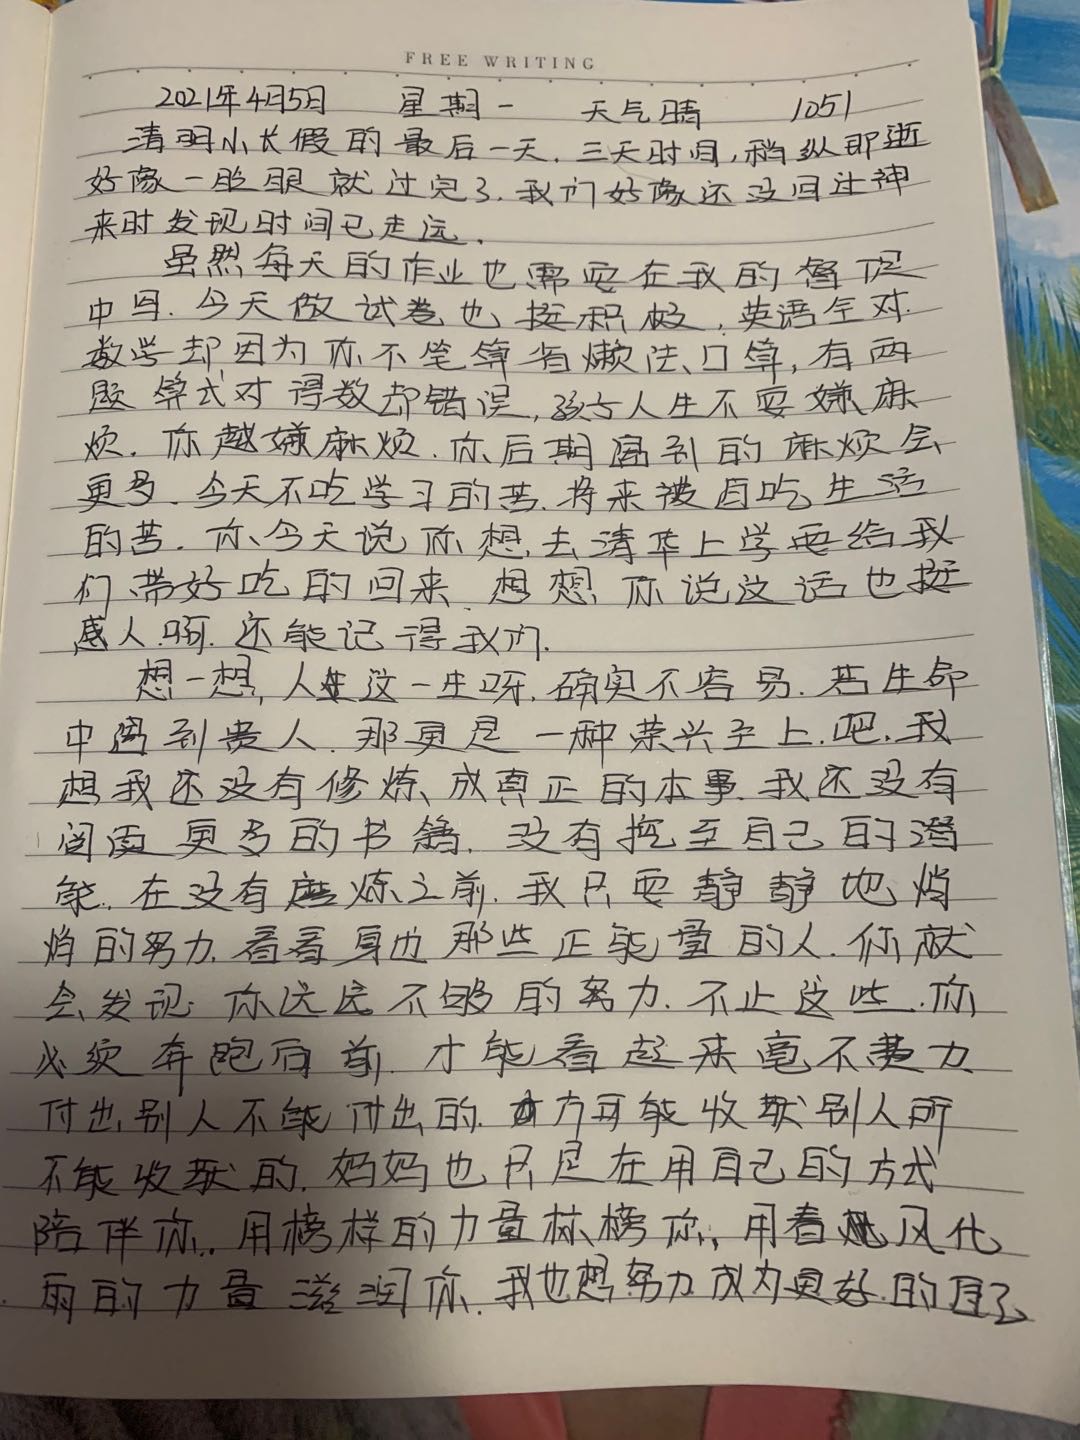 FREE WRITING
2021年4月5日 星期一 天气晴 1051
清明小长假的最后一天.三天时间,稍纵即逝
好像一眨眼就过完了.我们好像还没回过神
来时发现时间已走远.
虽然每天的作业也需要在我的督促
中写.今天做试卷也挺积极,英语全对.
数学却因为你不笔算省懒法、口算,有两
题算式对得数却错误,孩子人生不要嫌麻
烦.你越嫌麻烦.你后期遇到的麻烦会
更多.今天不吃学习的苦.将来被自吃生活
的苦.你今天说你想去清华上学要给我
们带好吃的回来.想想你说这话也挺
感人啊.还能记得我们.
想一想,人生这一生呀.确实不容易.若生命
中遇到贵人.那更是一种荣兴至上吧.我
想我还没有修炼成真正的本事.我还没有
阅读更多的书籍.没有挖至自己的潜
能.在没有磨炼之前.我只要静静地悄
悄的努力.看看身边那些正能量的人.你就
会发现:你远远不够的努力.不止这些.你
必须奔跑向前.才能看起来毫不费力
付出别人不能付出的.方可能收获别人所
不能收获的.妈妈也只是在用自己的方式
陪伴你.用榜样的力量标榜你,用春风化
雨的力量滋润你.我也想努力成为更好的自己